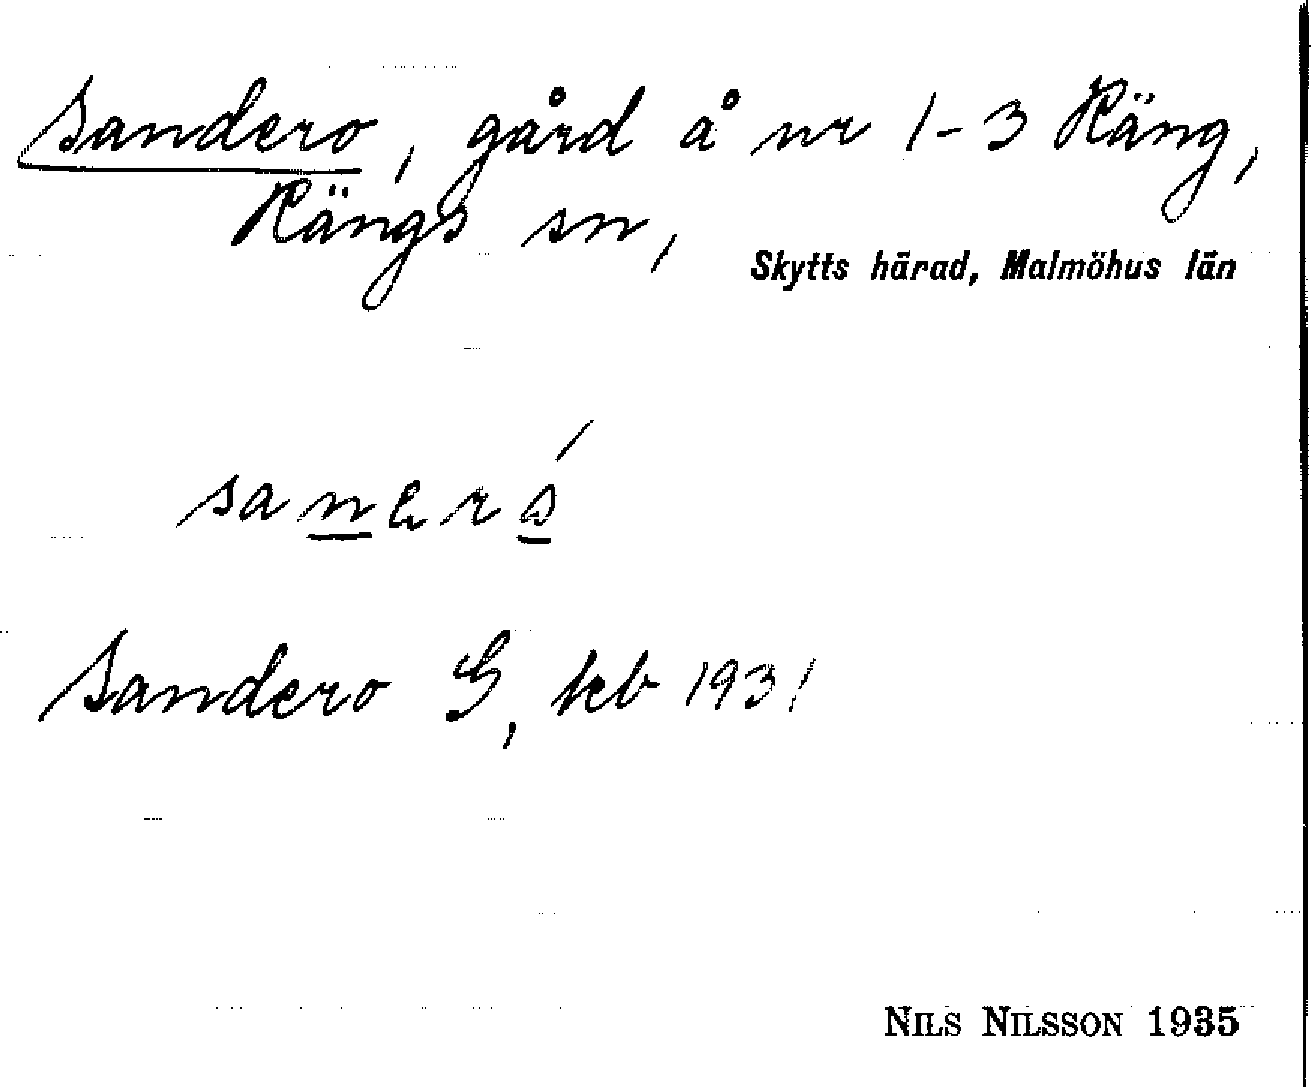 Sandero, gård å nr 1-3 Räng,
Rängs sn,
Skytts härad, Malmöhus län
Sandero G, keb 1931
NILS NILSSON 1935